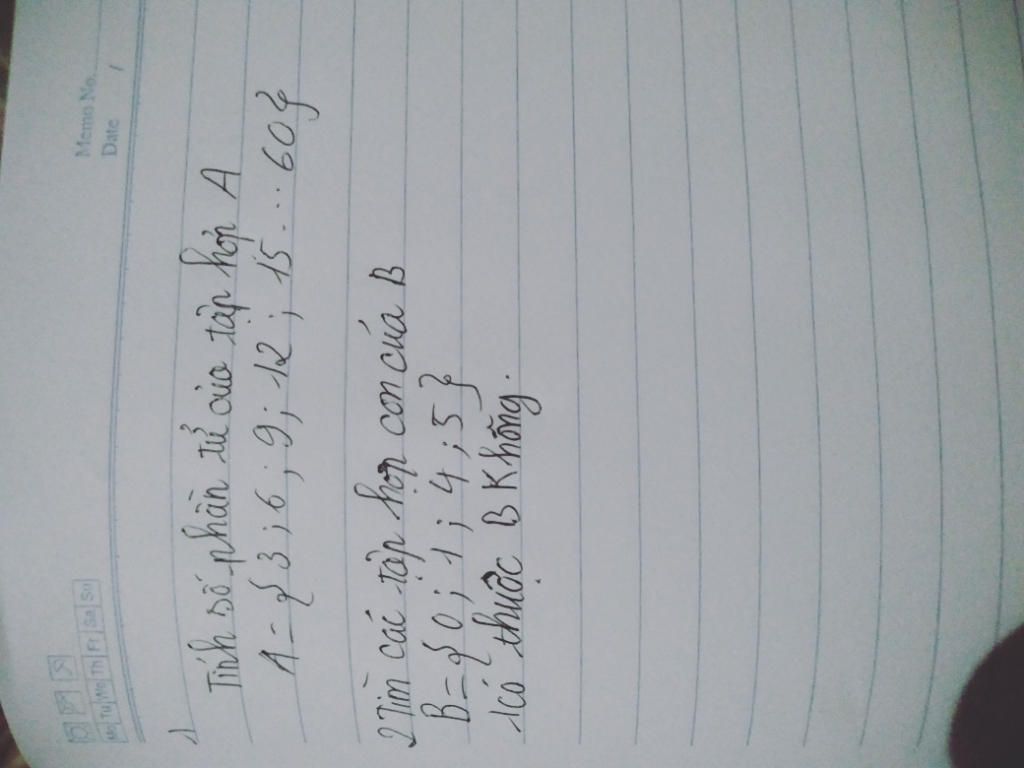 Memo No.
Date /
Mo Tu We Th Fr Sa Su
1)
Tính số phần tử của tập hợp A
A = { 3 ; 6 ; 9 ; 12 ; 15 ... 60 }
2 Tìm các tập hợp con của B
B = { 0 ; 1 ; 4 ; 5 }
1 có thuộc B Không.